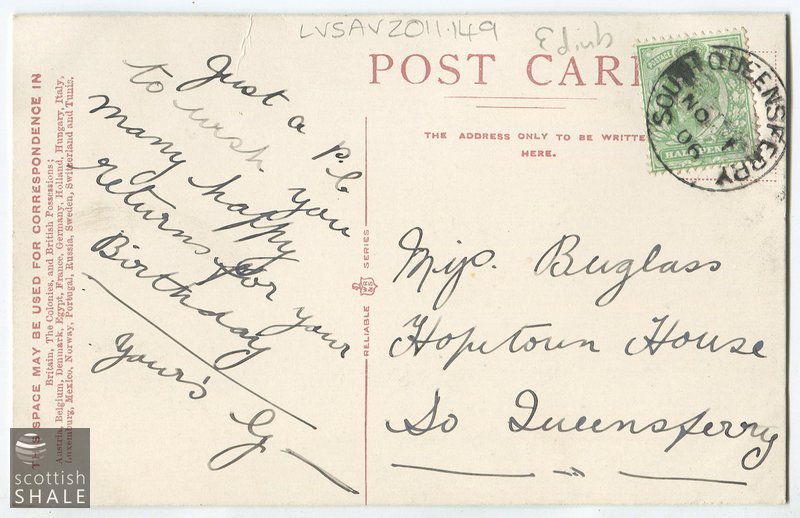 LVSAV2011.149
Eding
POST CARD
THE ADDRESS ONLY TO BE WRITTE
HERE.
POSTAGE
HALFPENNY
SOUTH QUEENSFERRY
NO
06
THIS SPACE MAY BE USED FOR CORRESPONDENCE IN
Britain, The Colonies, and British Possessions;
Austria, Belgium, Denmark, Egypt, France, Germany, Holland, Hungary, Italy,
Luxemburg, Mexico, Norway, Portugal, Russia, Sweden, Switzerland and Tunis.
Just a p.c
to wish you
many happy
returns for your
Birthday
Your's G
RELIABLE SERIES
Miss. Buglass
Hopetown House
So Queensferry
scottish
SHALE